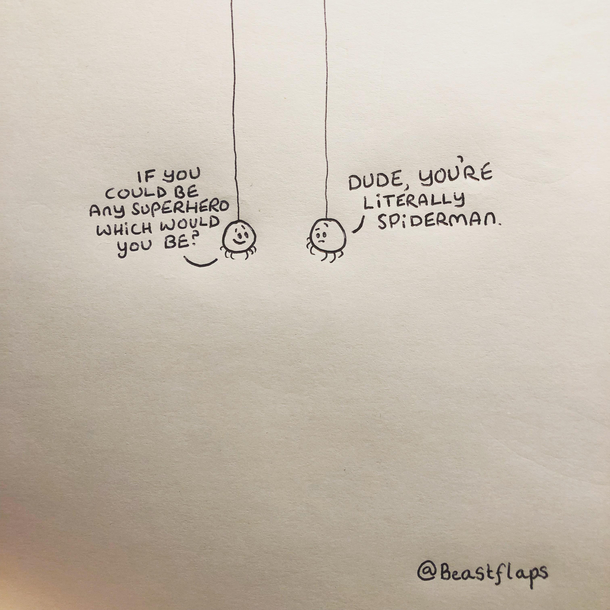 IF YOU
COULD BE
ANY SUPERHERO
WHICH WOULD
YOU BE?
DUDE, YOU'RE
LITERALLY
SPIDERMAN.
@Beastflaps